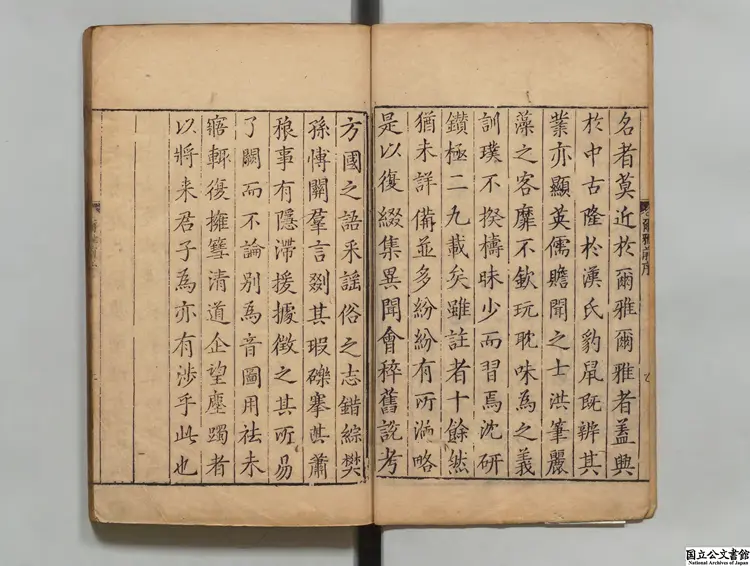 名者莫近於爾雅爾雅者蓋興
於中古隆於漢氏豹鼠既辨其
業亦顯英儒贍聞之士洪筆麗
藻之客靡不欽玩耽味為之義
訓璞不揆檮昧少而習焉沈研
鑽極二九載矣雖註者十餘然
猶未詳備並多紛紛有所漏略
是以復綴集異聞會稡舊說考
方國之語采謠俗之志錯綜樊
孫博關羣言剟其瑕礫搴其蕭
稂事有隱滯援據徵之其所易
了闕而不論別為音圖用祛未
寤輒復擁篲清道企望塵躅者
以將来君子為亦有涉乎此也
爾雅前序
国立公文書館
National Archives of Japan